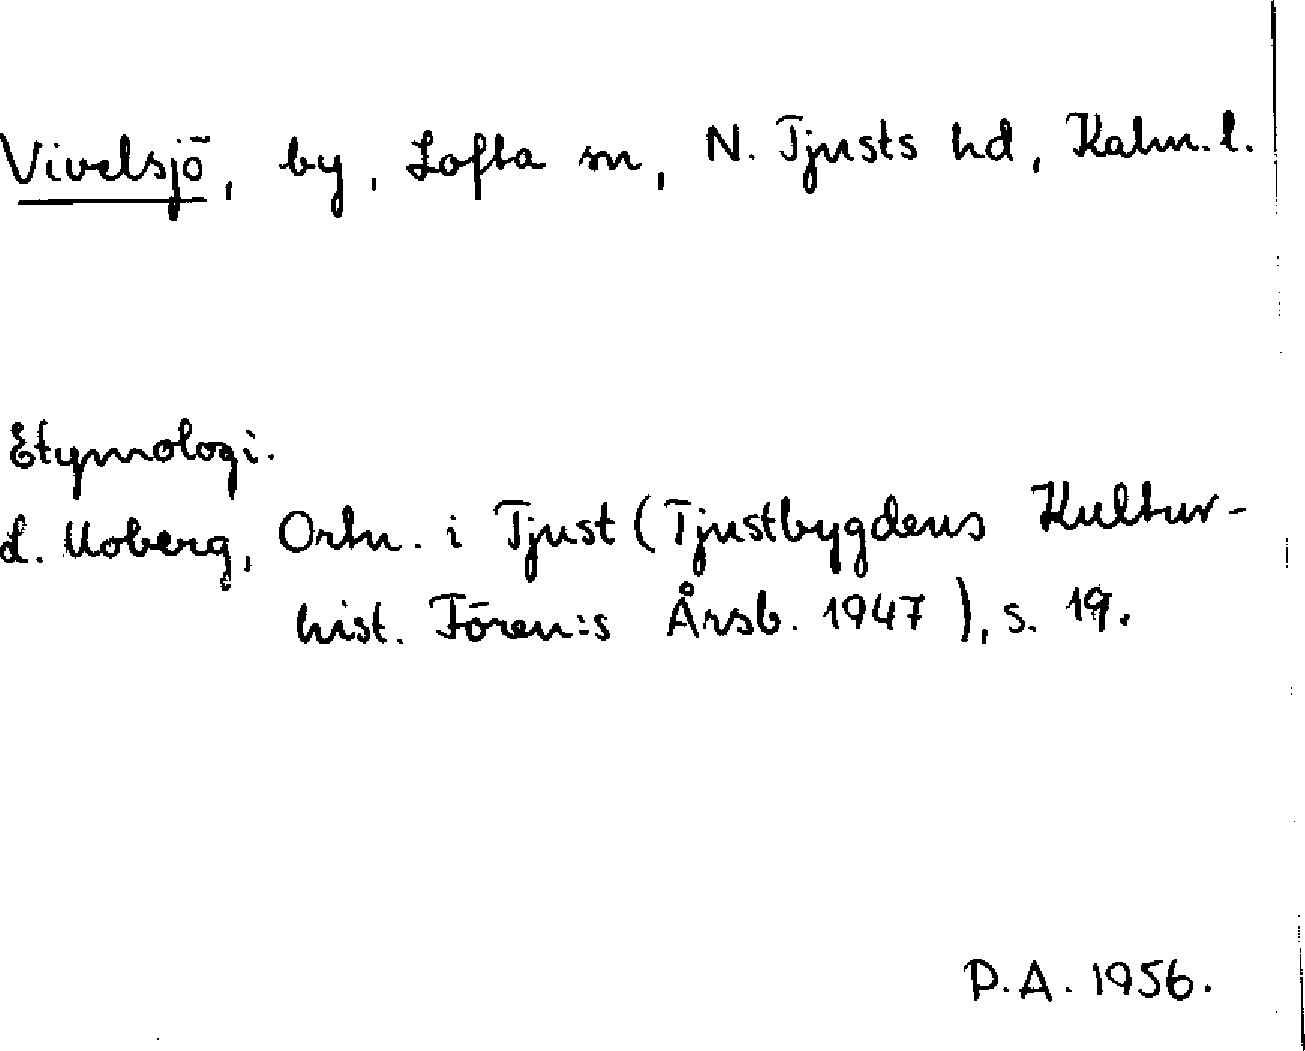 Vivelsjö, by, Lofta sn, N. Tjusts hd, Kalm. l.
Etymologi.
L. Moberg, Ortn. i Tjust (Tjustbygdens Kultur-
hist. Fören:s Årsb. 1947), s. 19.
P.A. 1956.